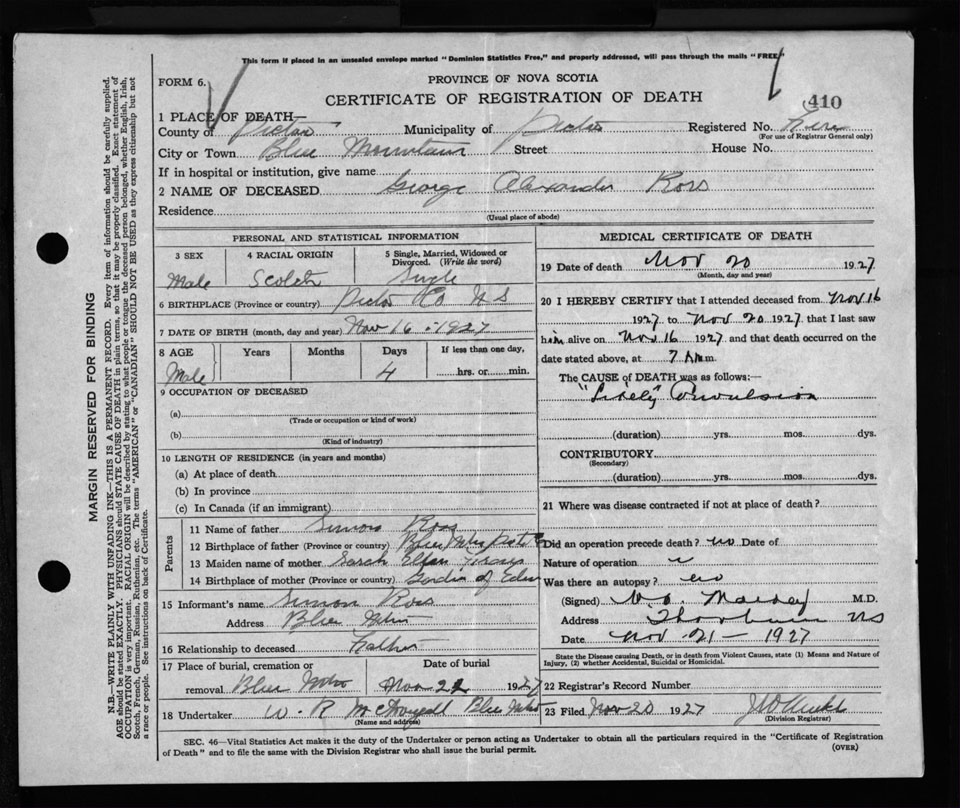 This form if placed in an unsealed envelope marked "Dominion Statistics Free," and properly addressed, will pass through the mails "FREE"
FORM 6.
PROVINCE OF NOVA SCOTIA
CERTIFICATE OF REGISTRATION OF DEATH
410
1 PLACE OF DEATH—
County of Pictou Municipality of Pictou Registered No.
(For use of Registrar General only)
City or Town Blue Mountain Street House No.
If in hospital or institution, give name
2 NAME OF DECEASED George Alexander Ross
Residence
(Usual place of abode)
PERSONAL AND STATISTICAL INFORMATION
3 SEX 4 RACIAL ORIGIN 5 Single, Married, Widowed or Divorced. (Write the word)
Male Scotch Single
6 BIRTHPLACE (Province or country) Pictou Co N S
7 DATE OF BIRTH (month, day and year) Nov 16 - 1927
8 AGE Years Months Days If less than one day,
Male 4 hrs. or min.
9 OCCUPATION OF DECEASED
(a)
(Trade or occupation or kind of work)
(b)
(Kind of industry)
10 LENGTH OF RESIDENCE (in years and months)
(a) At place of death
(b) In province
(c) In Canada (if an immigrant)
Parents
11 Name of father Simon Ross
12 Birthplace of father (Province or country) Blue
13 Maiden name of mother Sarah Ellen
14 Birthplace of mother (Province or country)
15 Informant's name Simon Ross
Address Blue Mtn
16 Relationship to deceased Father
17 Place of burial, cremation or Date of burial
removal Blue Mtn Nov 22 1927
18 Undertaker W. R McDougall Blue Mtn
(Name and address)
MEDICAL CERTIFICATE OF DEATH
19 Date of death Nov 20 1927
(Month, day and year)
20 I HEREBY CERTIFY that I attended deceased from Nov 16
1927 to Nov 20 1927 that I last saw
him alive on Nov 16 1927 and that death occurred on the
date stated above, at 7 A m.
The CAUSE of DEATH was as follows:—
"Likely" Convulsion
(duration) yrs. mos. dys.
CONTRIBUTORY
(Secondary)
(duration) yrs. mos. dys.
21 Where was disease contracted if not at place of death?
Did an operation precede death? no Date of
Nature of operation
Was there an autopsy? no
(Signed) M.D.
Address Thorburn NS
Date Nov 21 - 1927
State the Disease causing Death, or in death from Violent Causes, state (1) Means and Nature of
Injury, (2) whether Accidental, Suicidal or Homicidal.
22 Registrar's Record Number
23 Filed Nov 20 1927
(Division Registrar)
SEC. 46—Vital Statistics Act makes it the duty of the Undertaker or person acting as Undertaker to obtain all the particulars required in the "Certificate of Registration
of Death" and to file the same with the Division Registrar who shall issue the burial permit.
(OVER)
MARGIN RESERVED FOR BINDING
N.B.—WRITE PLAINLY WITH UNFADING INK—THIS IS A PERMANENT RECORD. Every item of information should be carefully supplied.
AGE should be stated EXACTLY. PHYSICIANS should STATE CAUSE OF DEATH in plain terms, so that it may be properly classified. Exact statement of
OCCUPATION is very important. RACIAL ORIGIN will be described by stating to what people or tongue the deceased person belonged, whether English, Irish,
Scotch, French, German, Russian, Ruthenian, etc. The terms "AMERICAN" or "CANADIAN" SHOULD NOT BE USED as they express citizenship but not
a race or people. See instructions on back of Certificate.